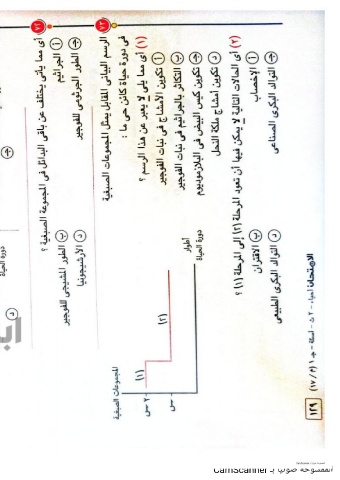 ٧٣ الرسم البيانى المقابل يمثل المجموعات الصبغية
فى دورة حياة كائن حى ما :
(١) أى مما يلى لا يعبر عن هذا الرسم ؟
أ تكوين الأمشاج فى نبات الفوجير
ب التكاثر بالجراثيم فى نبات الفوجير
ج تكوين كيس البيض فى البلازموديوم
د تكوين أمشاج ملكة النحل
المجموعات الصبغية
٢ س
س
(١)
(٢)
أطوار
دورة الحياة
(٢) أى الحالات التالية لا يمكن فيها أن تعود المرحلة (٢) إلى المرحلة (١) ؟
أ الإخصاب
ب الاقتران
ج التوالد البكرى الصناعى
د التوالد البكرى الطبيعى
٧٤ أى مما يأتى يختلف عن باقى البدائل فى المجموعة الصبغية ؟
أ الجراثيم
ب الطور المشيجى للفوجير
ج الطور الجرثومى للفوجير
د الأرشيجونيا
دورة الحياة
ج
د
١٢٩
الممسوحة ضوئيا بـ CamScanner